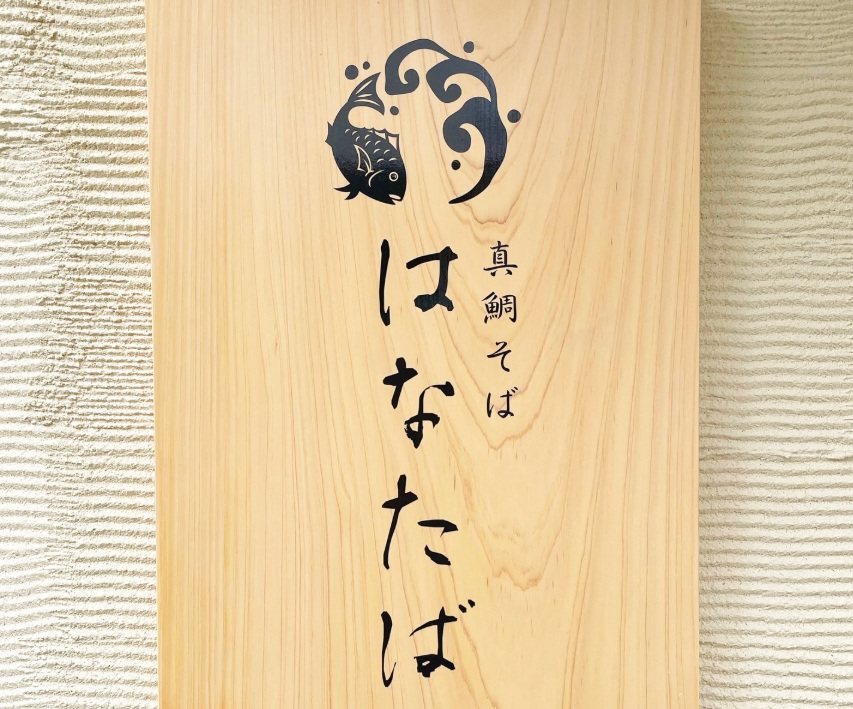 真鯛そば
はなたば